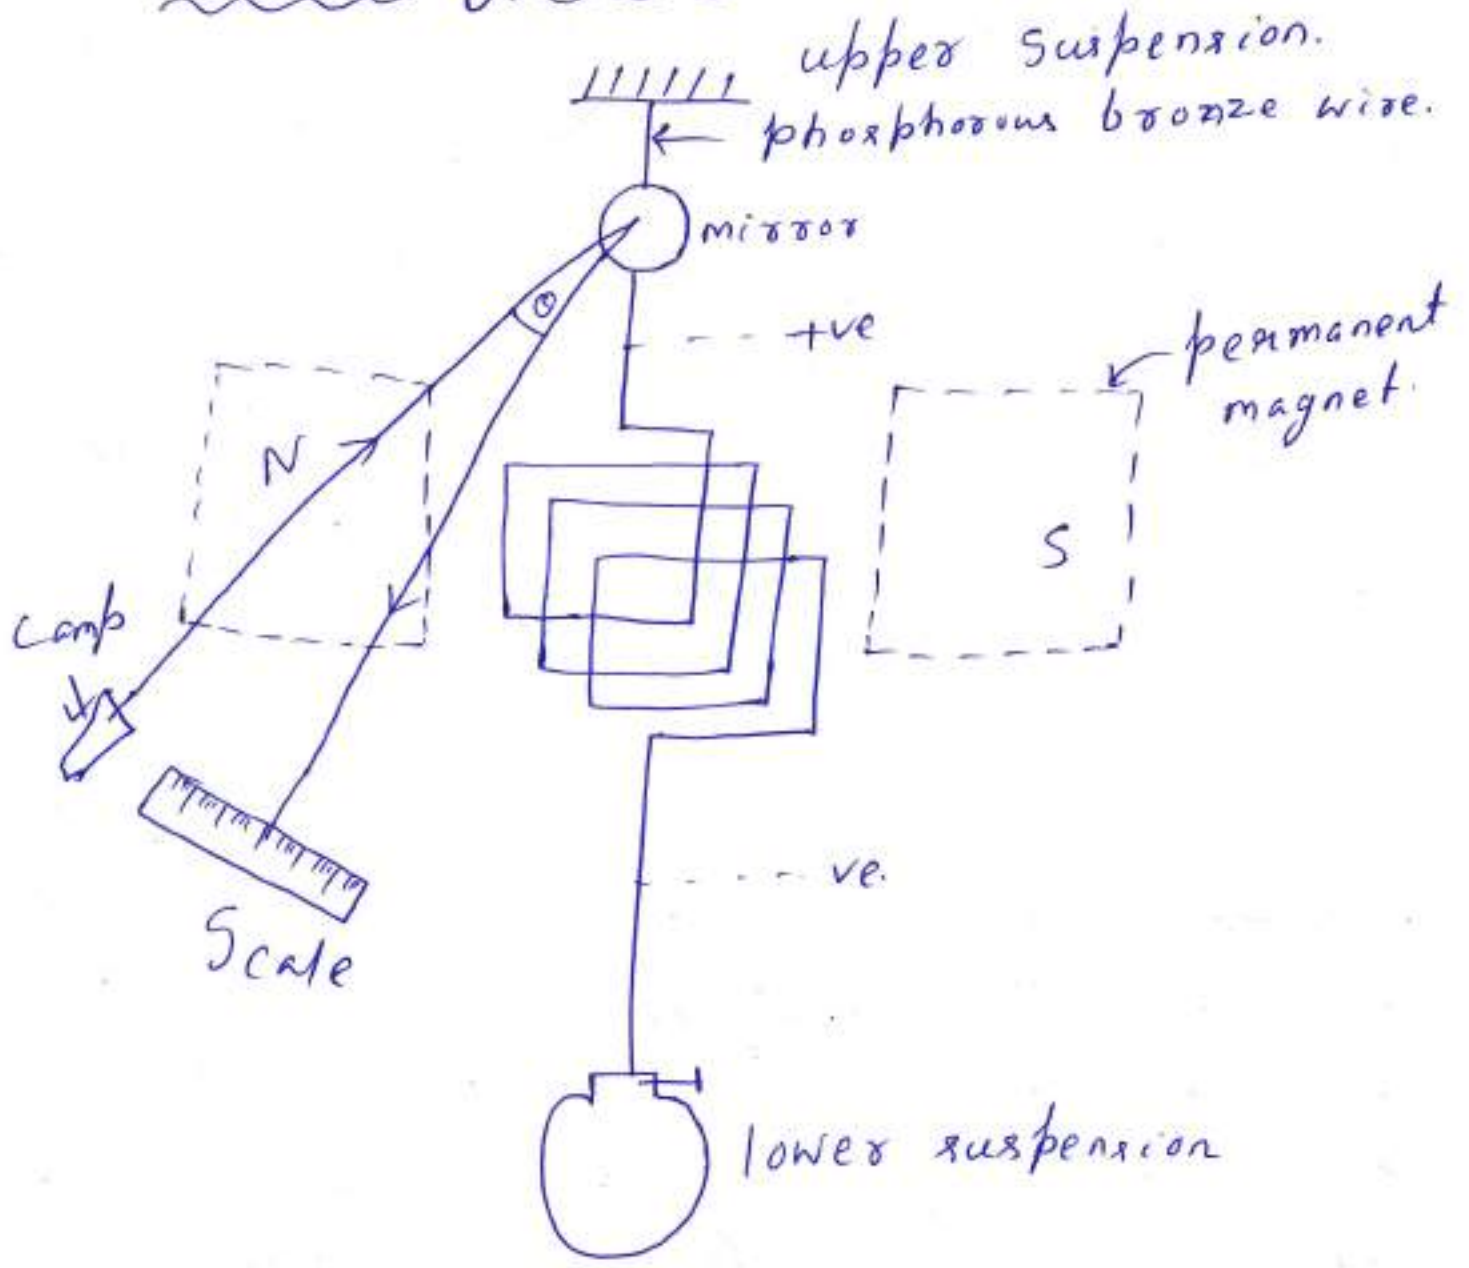 upper Suspension.
phosphorous bronze wire.
mirror
θ
+ve
permanent
magnet.
N
S
Lamp
-ve.
Scale
lower suspension